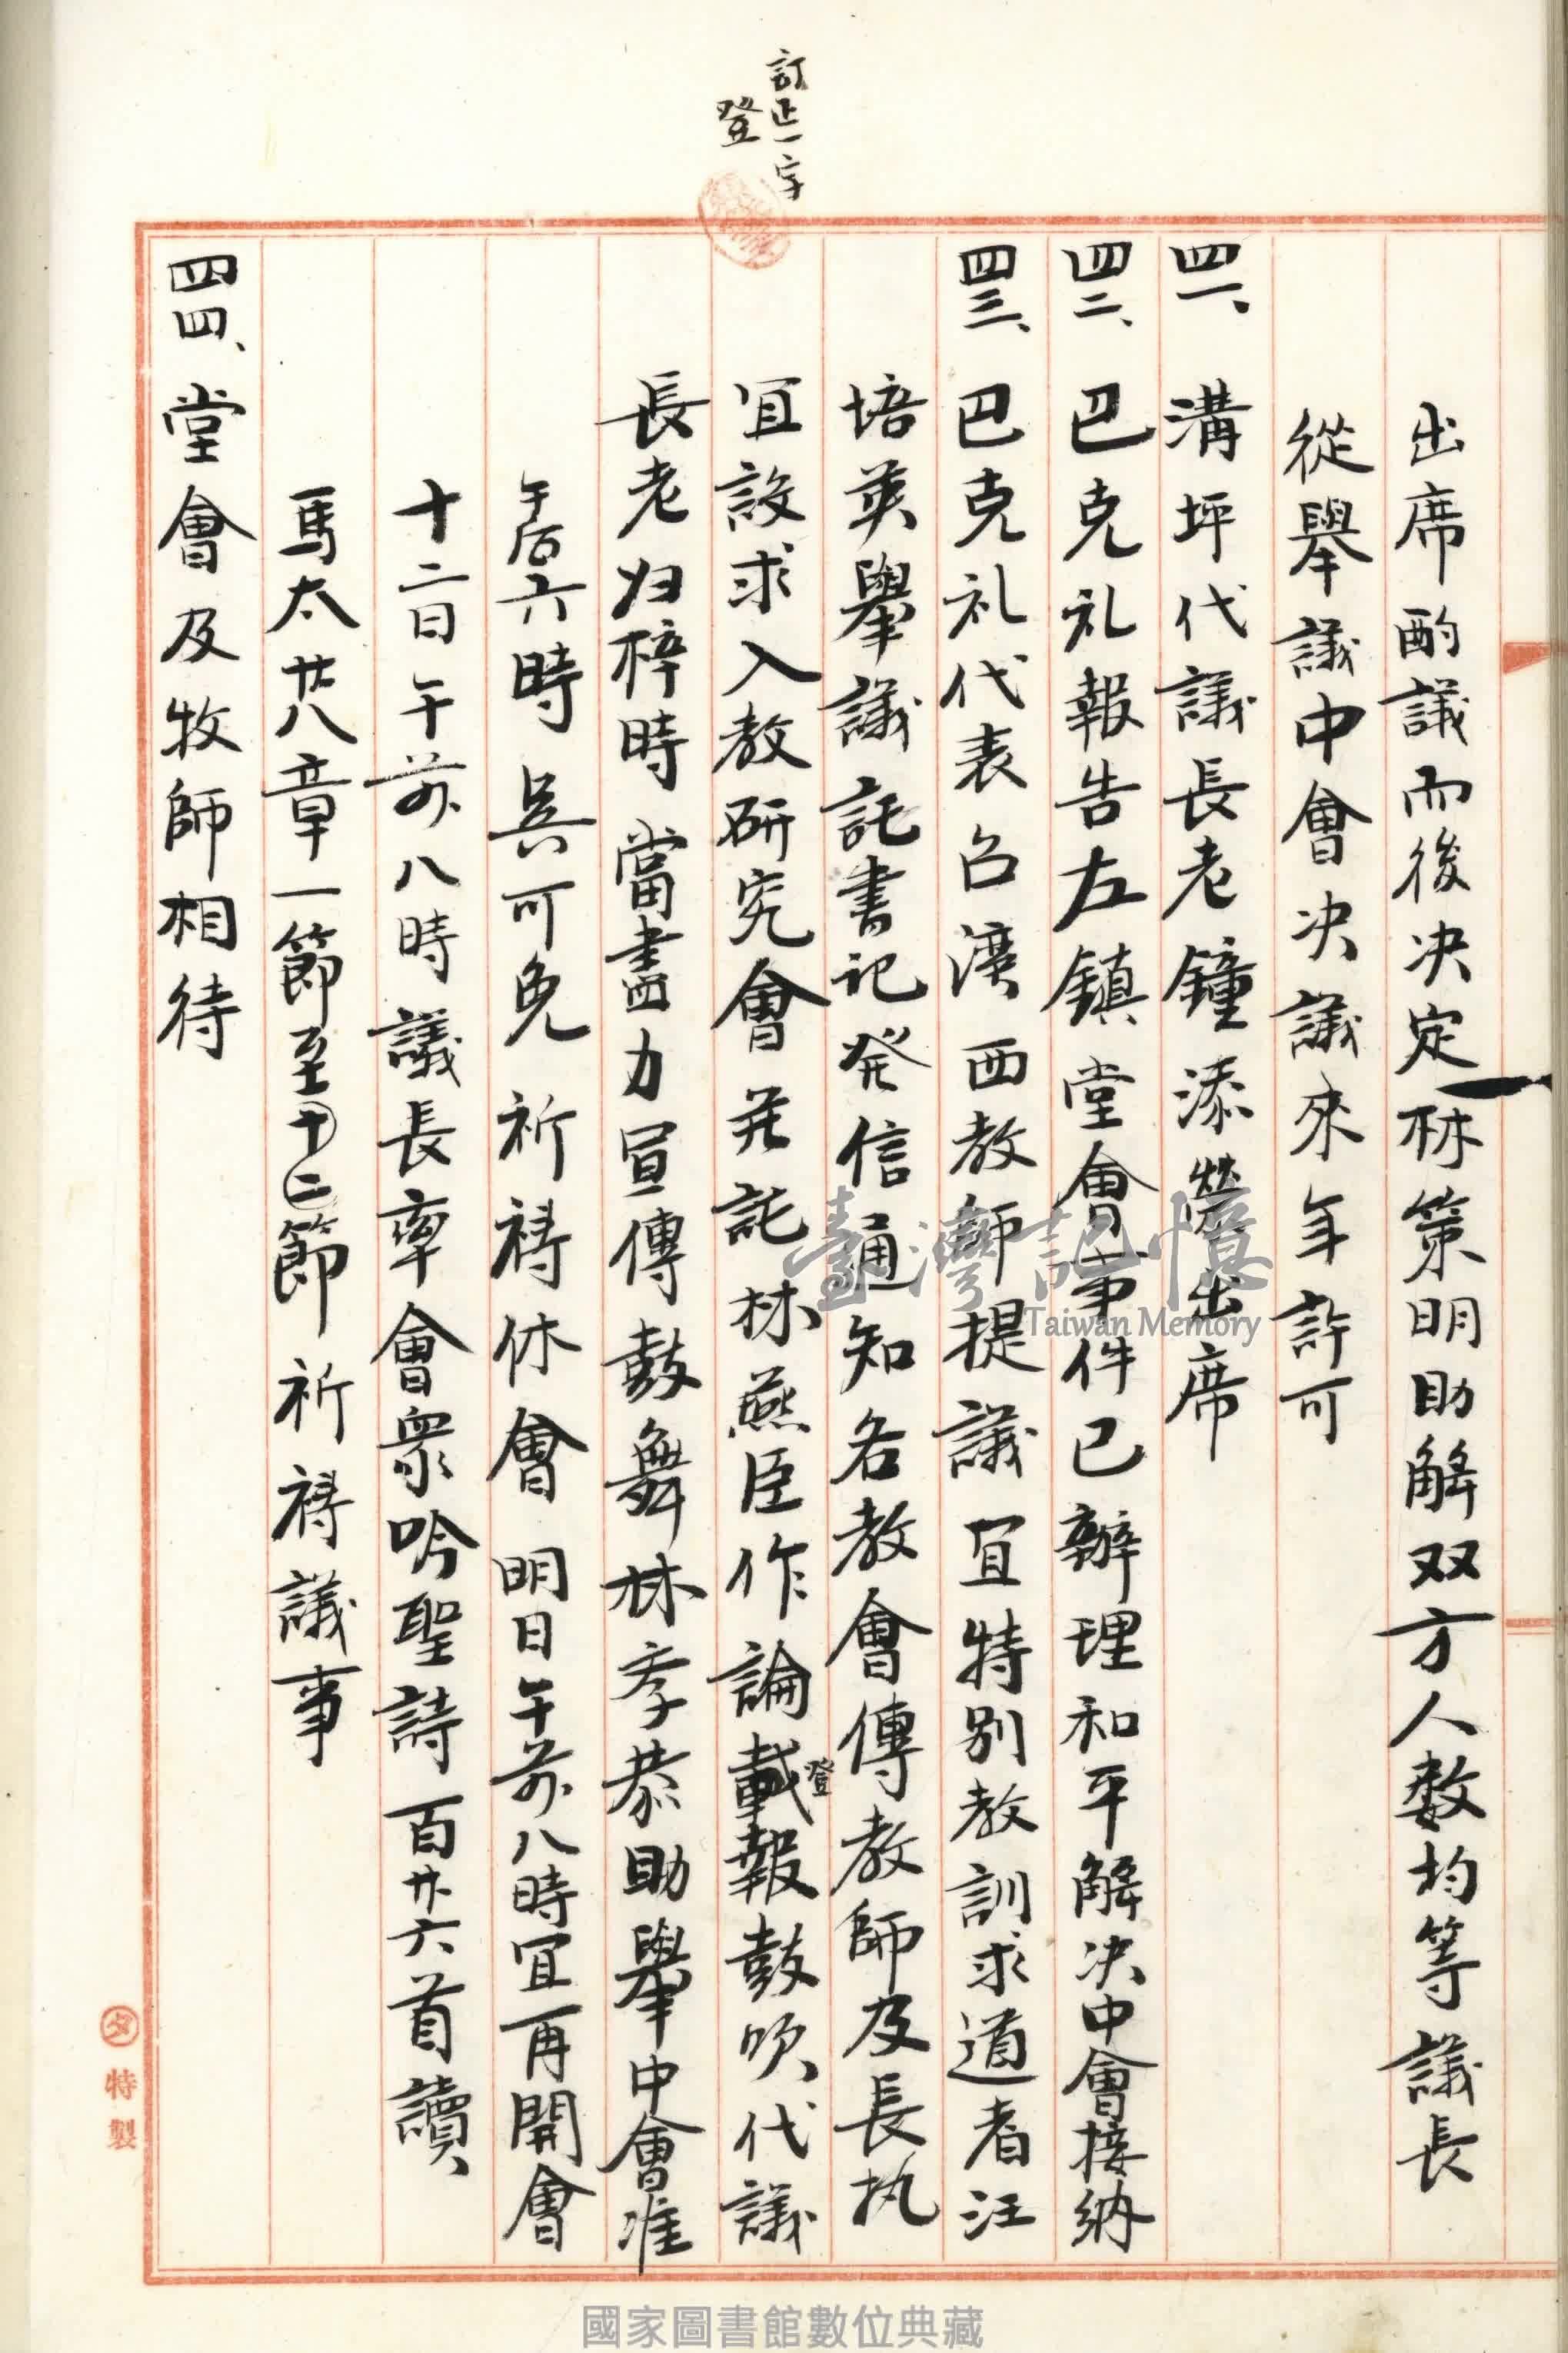 訂正一字
登
出席酌議而後决定林策明助解双方人数均等議長
從舉議中會决議來年許可
四一、溝坪代議長老鐘添登出席
四二、巴克礼報告左鎮堂會事件已辦理和平解决中會接納
四三、巴克礼代表台湾西教師提議宜特別教訓求道者汪
培英舉議託書記発信通知各教會傳教師及長执
宜設求入教研究會并託林燕臣作論登載報鼓吹代議
長老归梓時當盡力宣傳鼓舞林孝恭助舉中會准
午后六時吳可免祈禱休會明日午前八時宜再開會
十二日午前八時議長率會衆吟聖詩百廿六首讀
馬太廿八章一節至十二節祈禱議事
四四、堂會及牧師相待
特製
臺灣記憶
Taiwan Memory
國家圖書館數位典藏